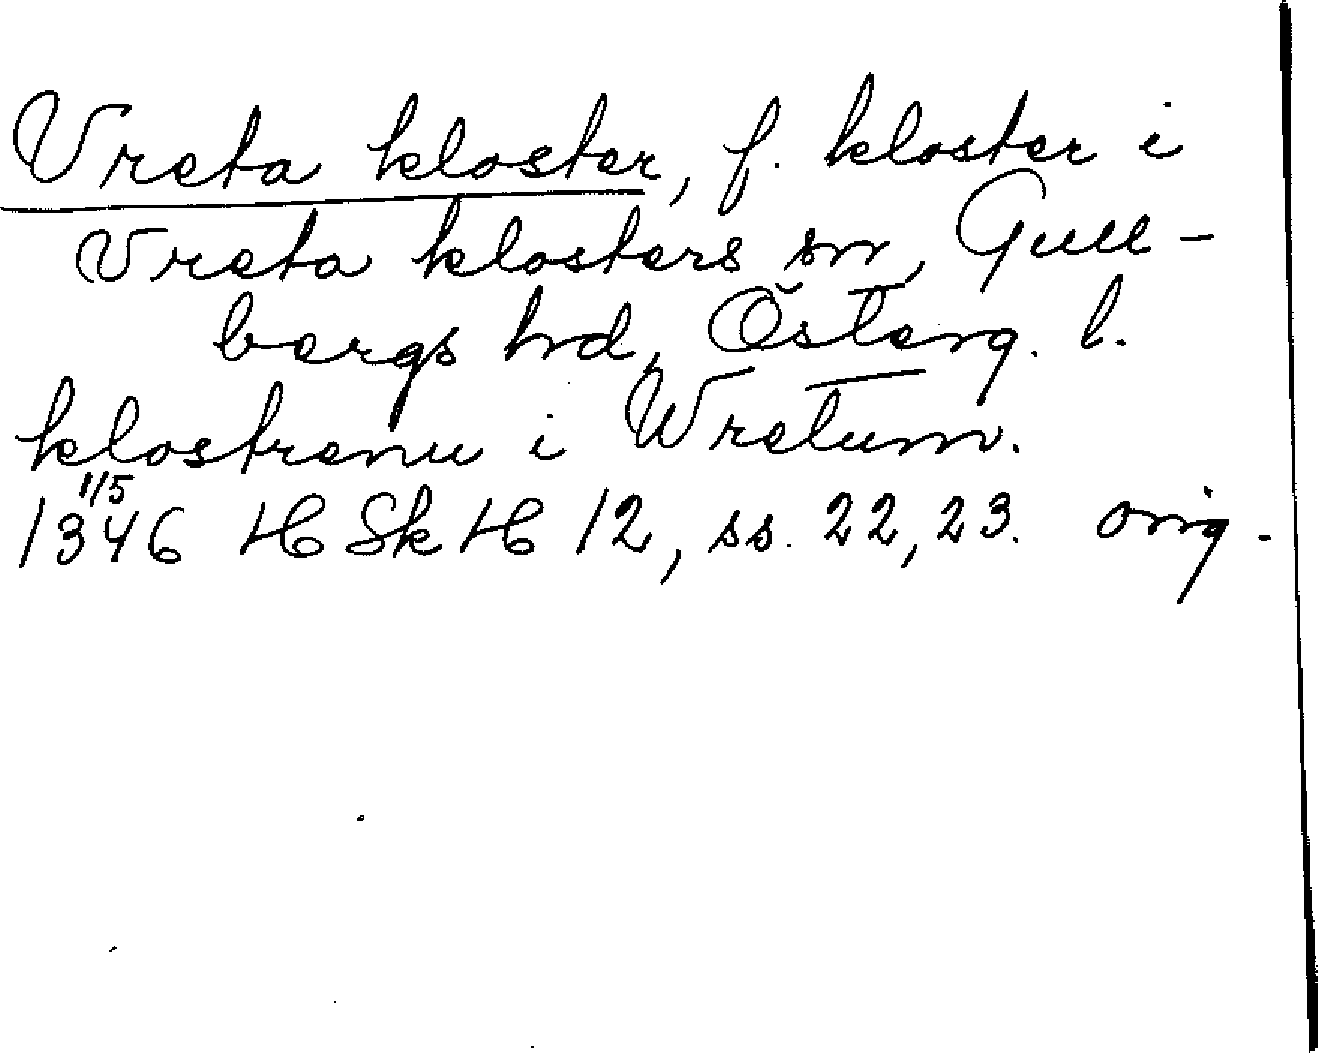 Vreta kloster, f. kloster i
Vreta klosters sn, Gull-
bergs hd, Österg. l.
klostrenu i Wretum.
1346 1/5 HSkH 12, ss. 22, 23. orig.